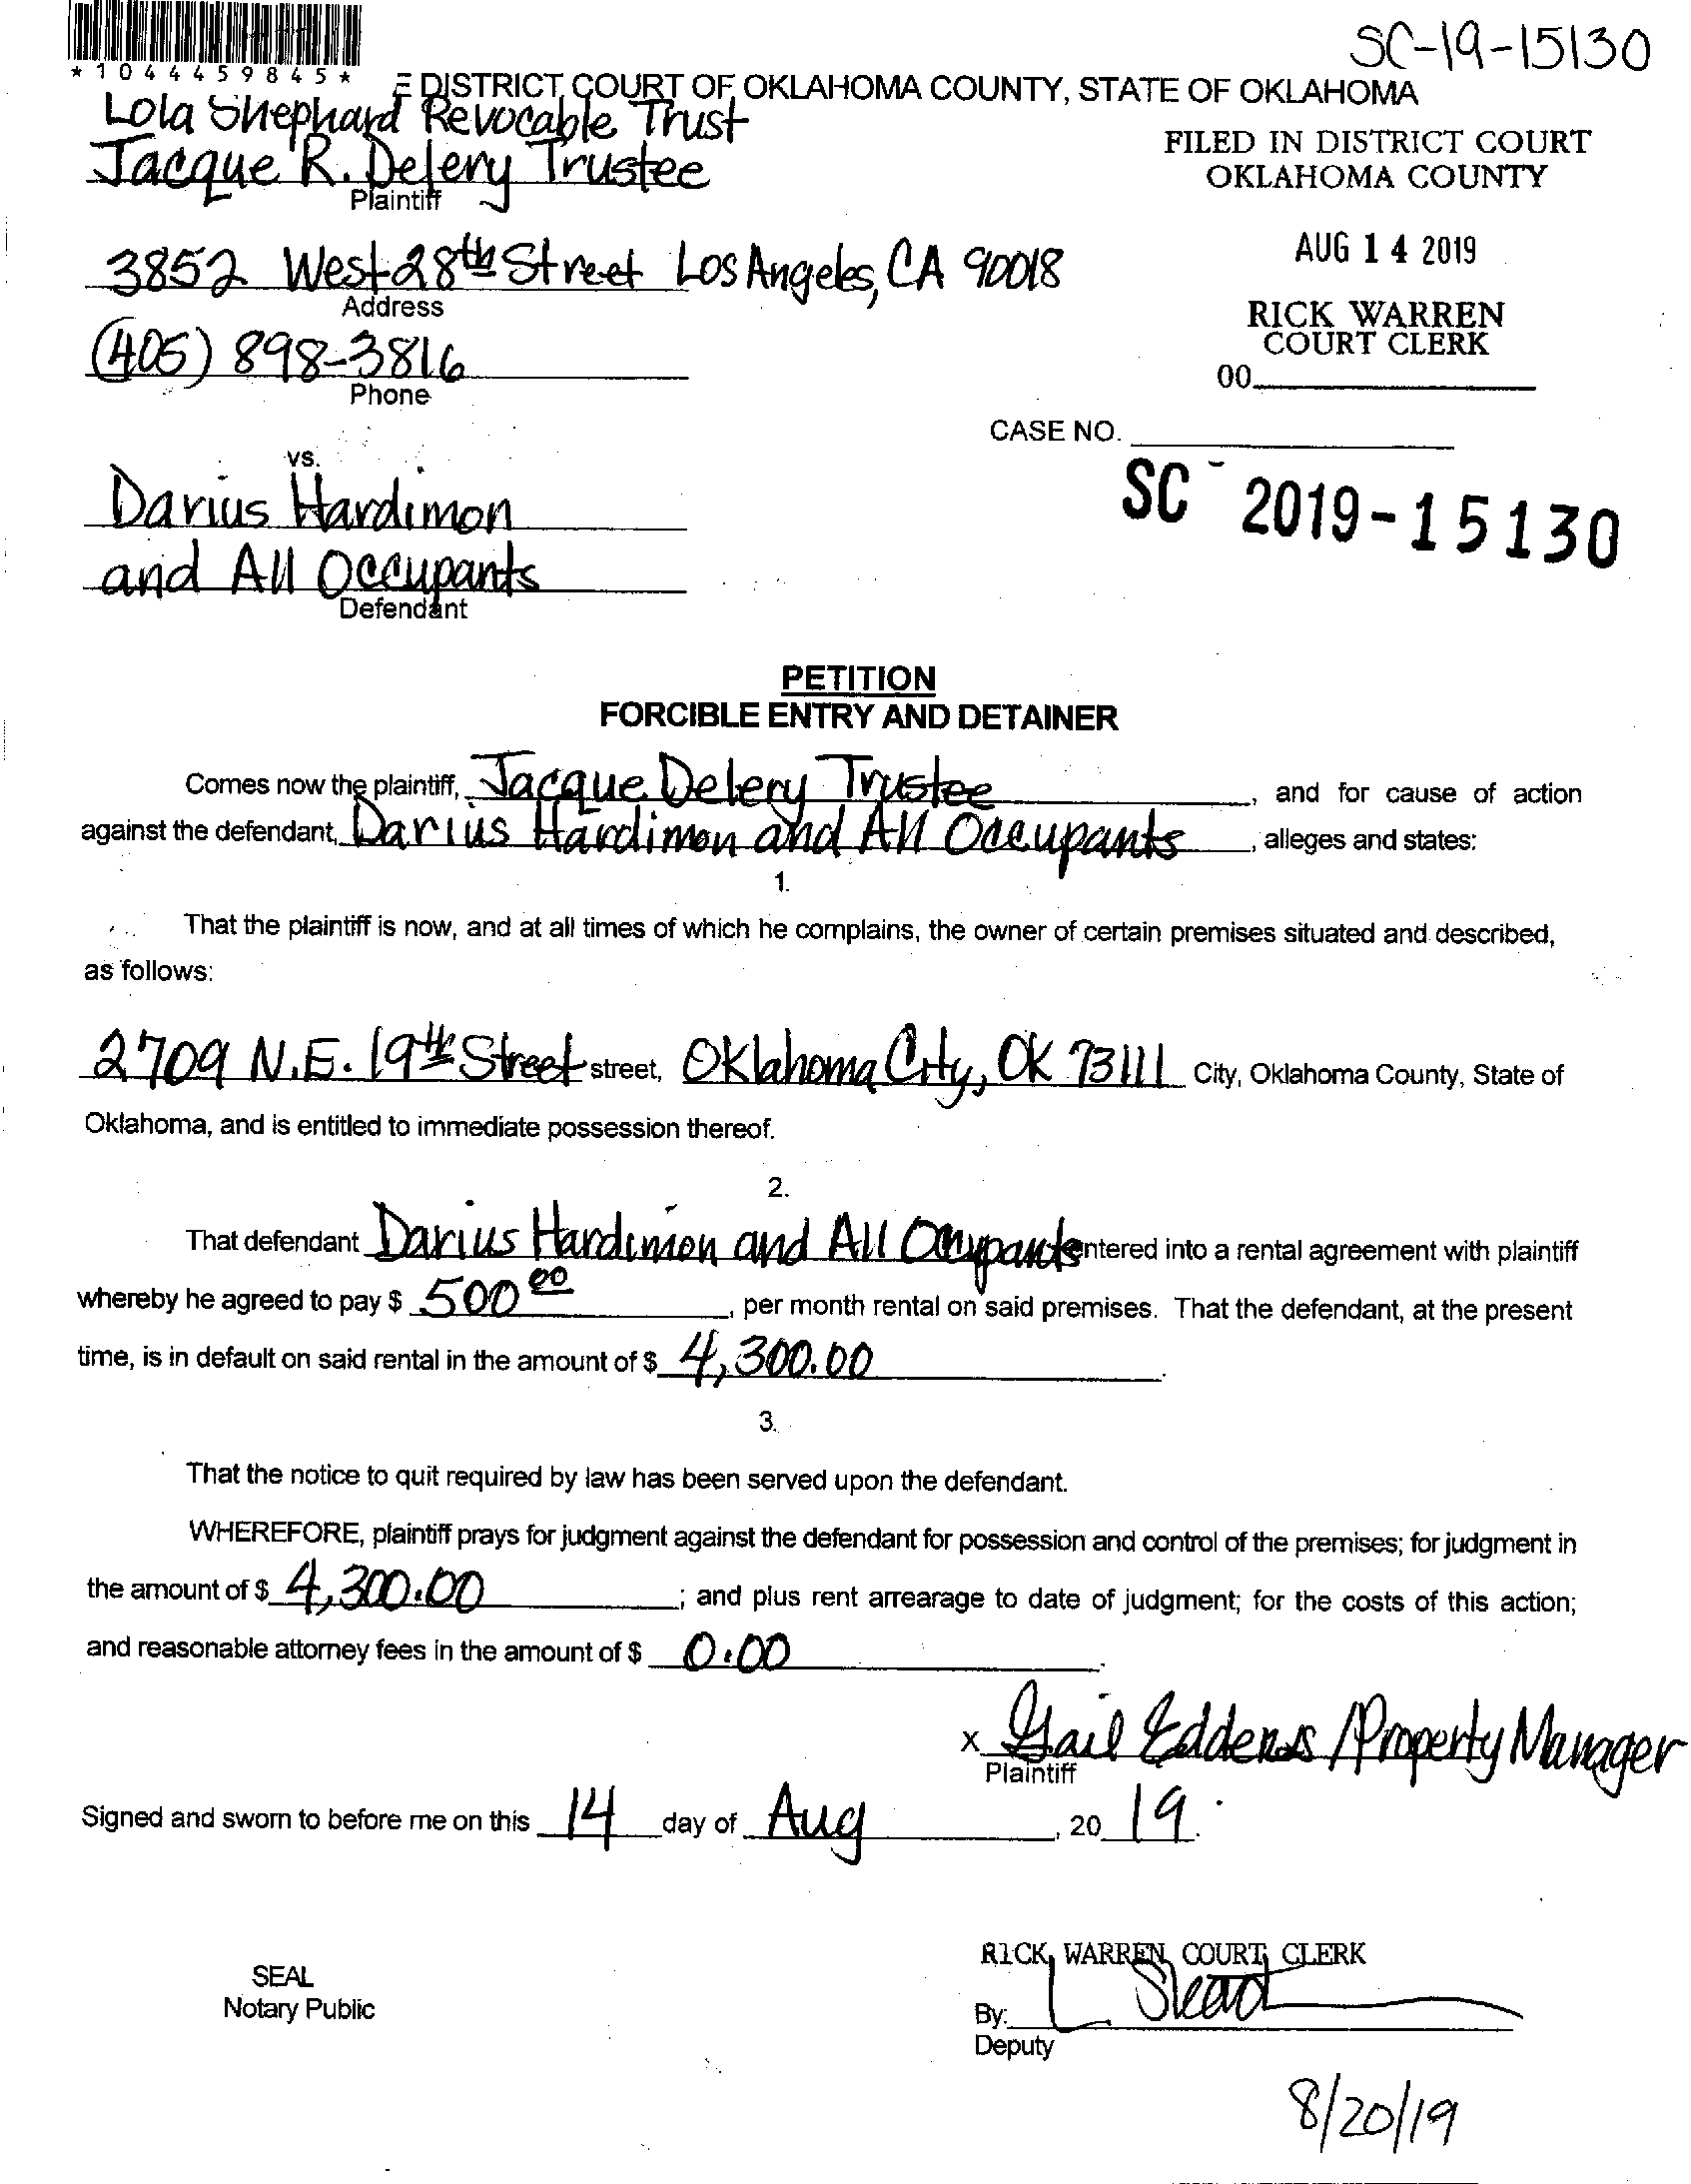 SC-19-15130
*1044459845*
E DISTRICT COURT OF OKLAHOMA COUNTY, STATE OF OKLAHOMA
Lola Shephard Revocable Trust
Jacque R. Delery Trustee
Plaintiff
FILED IN DISTRICT COURT
OKLAHOMA COUNTY
3852 West 28th Street Los Angeles, CA 90018
Address
AUG 14 2019
(405) 898-3816
Phone
RICK WARREN
COURT CLERK
00
CASE NO.
vs.
SC - 2019-15130
Darius Hardimon
and All Occupants
Defendant
PETITION
FORCIBLE ENTRY AND DETAINER
Comes now the plaintiff, Jacque Delery Trustee, and for cause of action
against the defendant, Darius Hardimon and All Occupants, alleges and states:
1.
That the plaintiff is now, and at all times of which he complains, the owner of certain premises situated and described,
as follows:
2709 N.E. 19th Street street, Oklahoma City, OK 73111 City, Oklahoma County, State of
Oklahoma, and is entitled to immediate possession thereof.
2.
That defendant Darius Hardimon and All Occupants entered into a rental agreement with plaintiff
whereby he agreed to pay $ 500 00, per month rental on said premises. That the defendant, at the present
time, is in default on said rental in the amount of $ 4,300.00.
3.
That the notice to quit required by law has been served upon the defendant.
WHEREFORE, plaintiff prays for judgment against the defendant for possession and control of the premises; for judgment in
the amount of $ 4,300.00; and plus rent arrearage to date of judgment; for the costs of this action;
and reasonable attorney fees in the amount of $ 0.00.
x Gail Eddens / Property Manager
Plaintiff
Signed and sworn to before me on this 14 day of Aug, 20 19.
RICK WARREN, COURT CLERK
SEAL
Notary Public
By:
Deputy
8/20/19